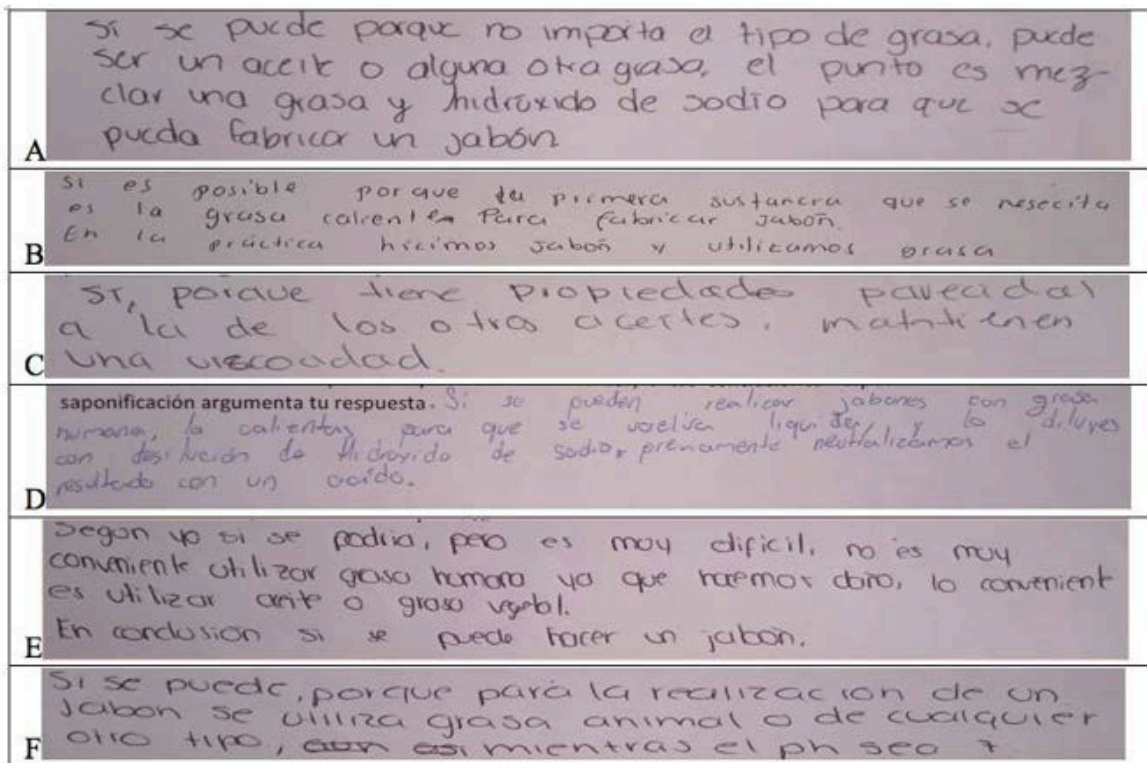 Si se puede porque no importa el tipo de grasa, puede
ser un aceite o alguna otra grasa, el punto es mez-
clar una grasa y hidróxido de sodio para que se
pueda fabricar un jabón
A
si es posible por que la primera sustancia que se nesecita
es la grasa caliente para fabricar jabon.
En la práctica hicimos jabon y utilizamos grasa
B
SI, porque tiene propiedades parecidas
a la de los otros aceites. mantienen
una viscocidad.
C
saponificación argumenta tu respuesta. Si se pueden realizar jabones con grasa
humana, la calientas para que se vuelva liquida, y la diluyes
con disolución de Hidroxido de sodio, previamente neutralizamos el
resultado con un acido.
D
Segun yo si se podria, pero es muy dificil, no es muy
conveniente utilizar grasa humana ya que hacemos daño, lo convenient
es utilizar aceite o grasa vegetal.
En conclusion si se puede hacer un jabon.
E
Si se puede, porque para la realizacion de un
jabon se utiliza grasa animal o de cualquier
otro tipo, aun asi mientras el ph sea 7
F